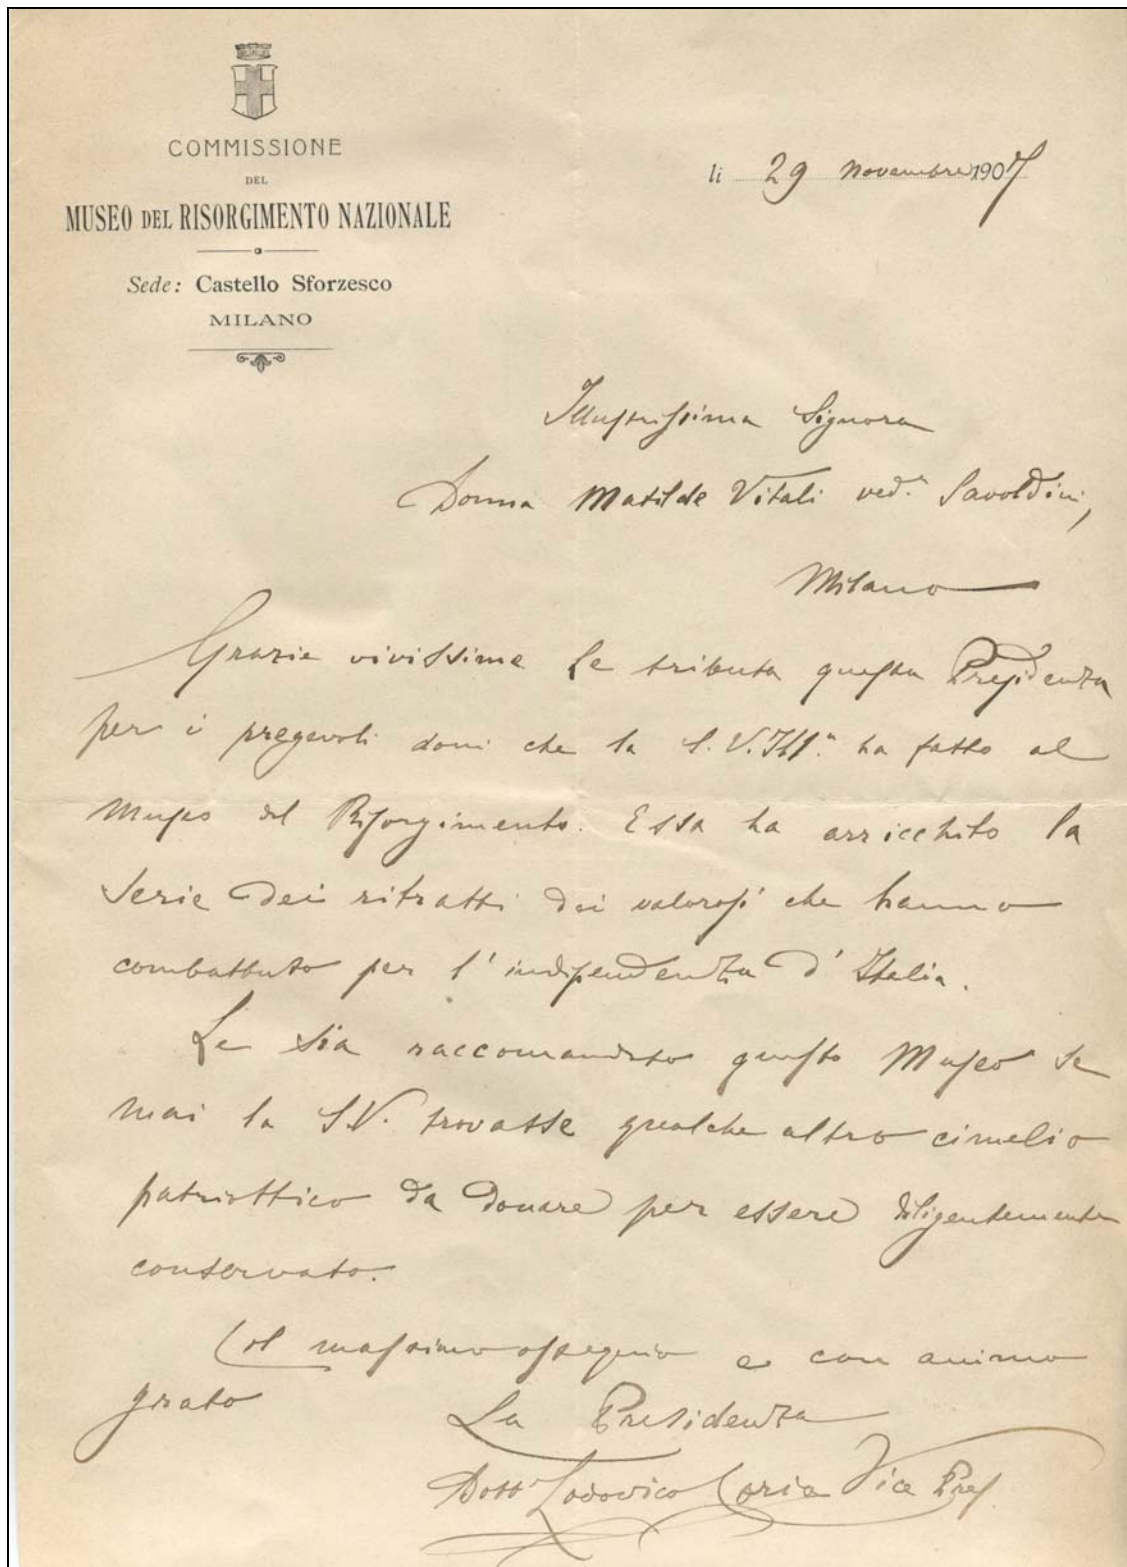 COMMISSIONE
DEL
MUSEO DEL RISORGIMENTO NAZIONALE
Sede: Castello Sforzesco
MILANO
li 29 Novembre 1907
Illustrissima Signora
Donna Matilde Vitali ved.ª Savoldini,
Milano
Grazie vivissime Le tributa questa Presidenza
per i pregevoli doni che la S. V. Ill.ª ha fatto al
Museo del Risorgimento. Essa ha arricchito la
serie dei ritratti dei valorosi che hanno
combattuto per l'indipendenza d'Italia.
Le sia raccomandato questo Museo se
mai la S.V. trovasse qualche altro cimelio
patriottico da donare per essere diligentemente
conservato.
Col massimo ossequio e con animo
grato
La Presidenza
Dott Lodovico Coria Vice Pres.